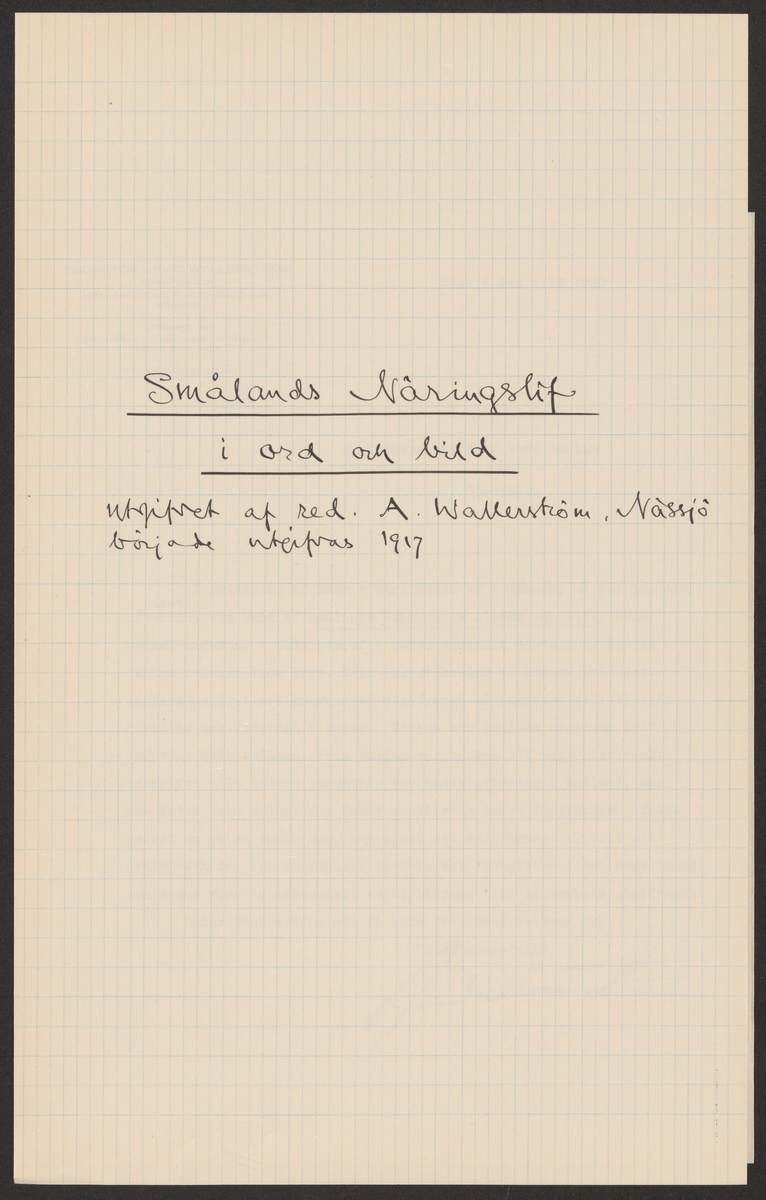 Smålands Näringslif
i ord och bild
utgifvet af red. A. Wallerström, Nässjö
började utgifvas 1917